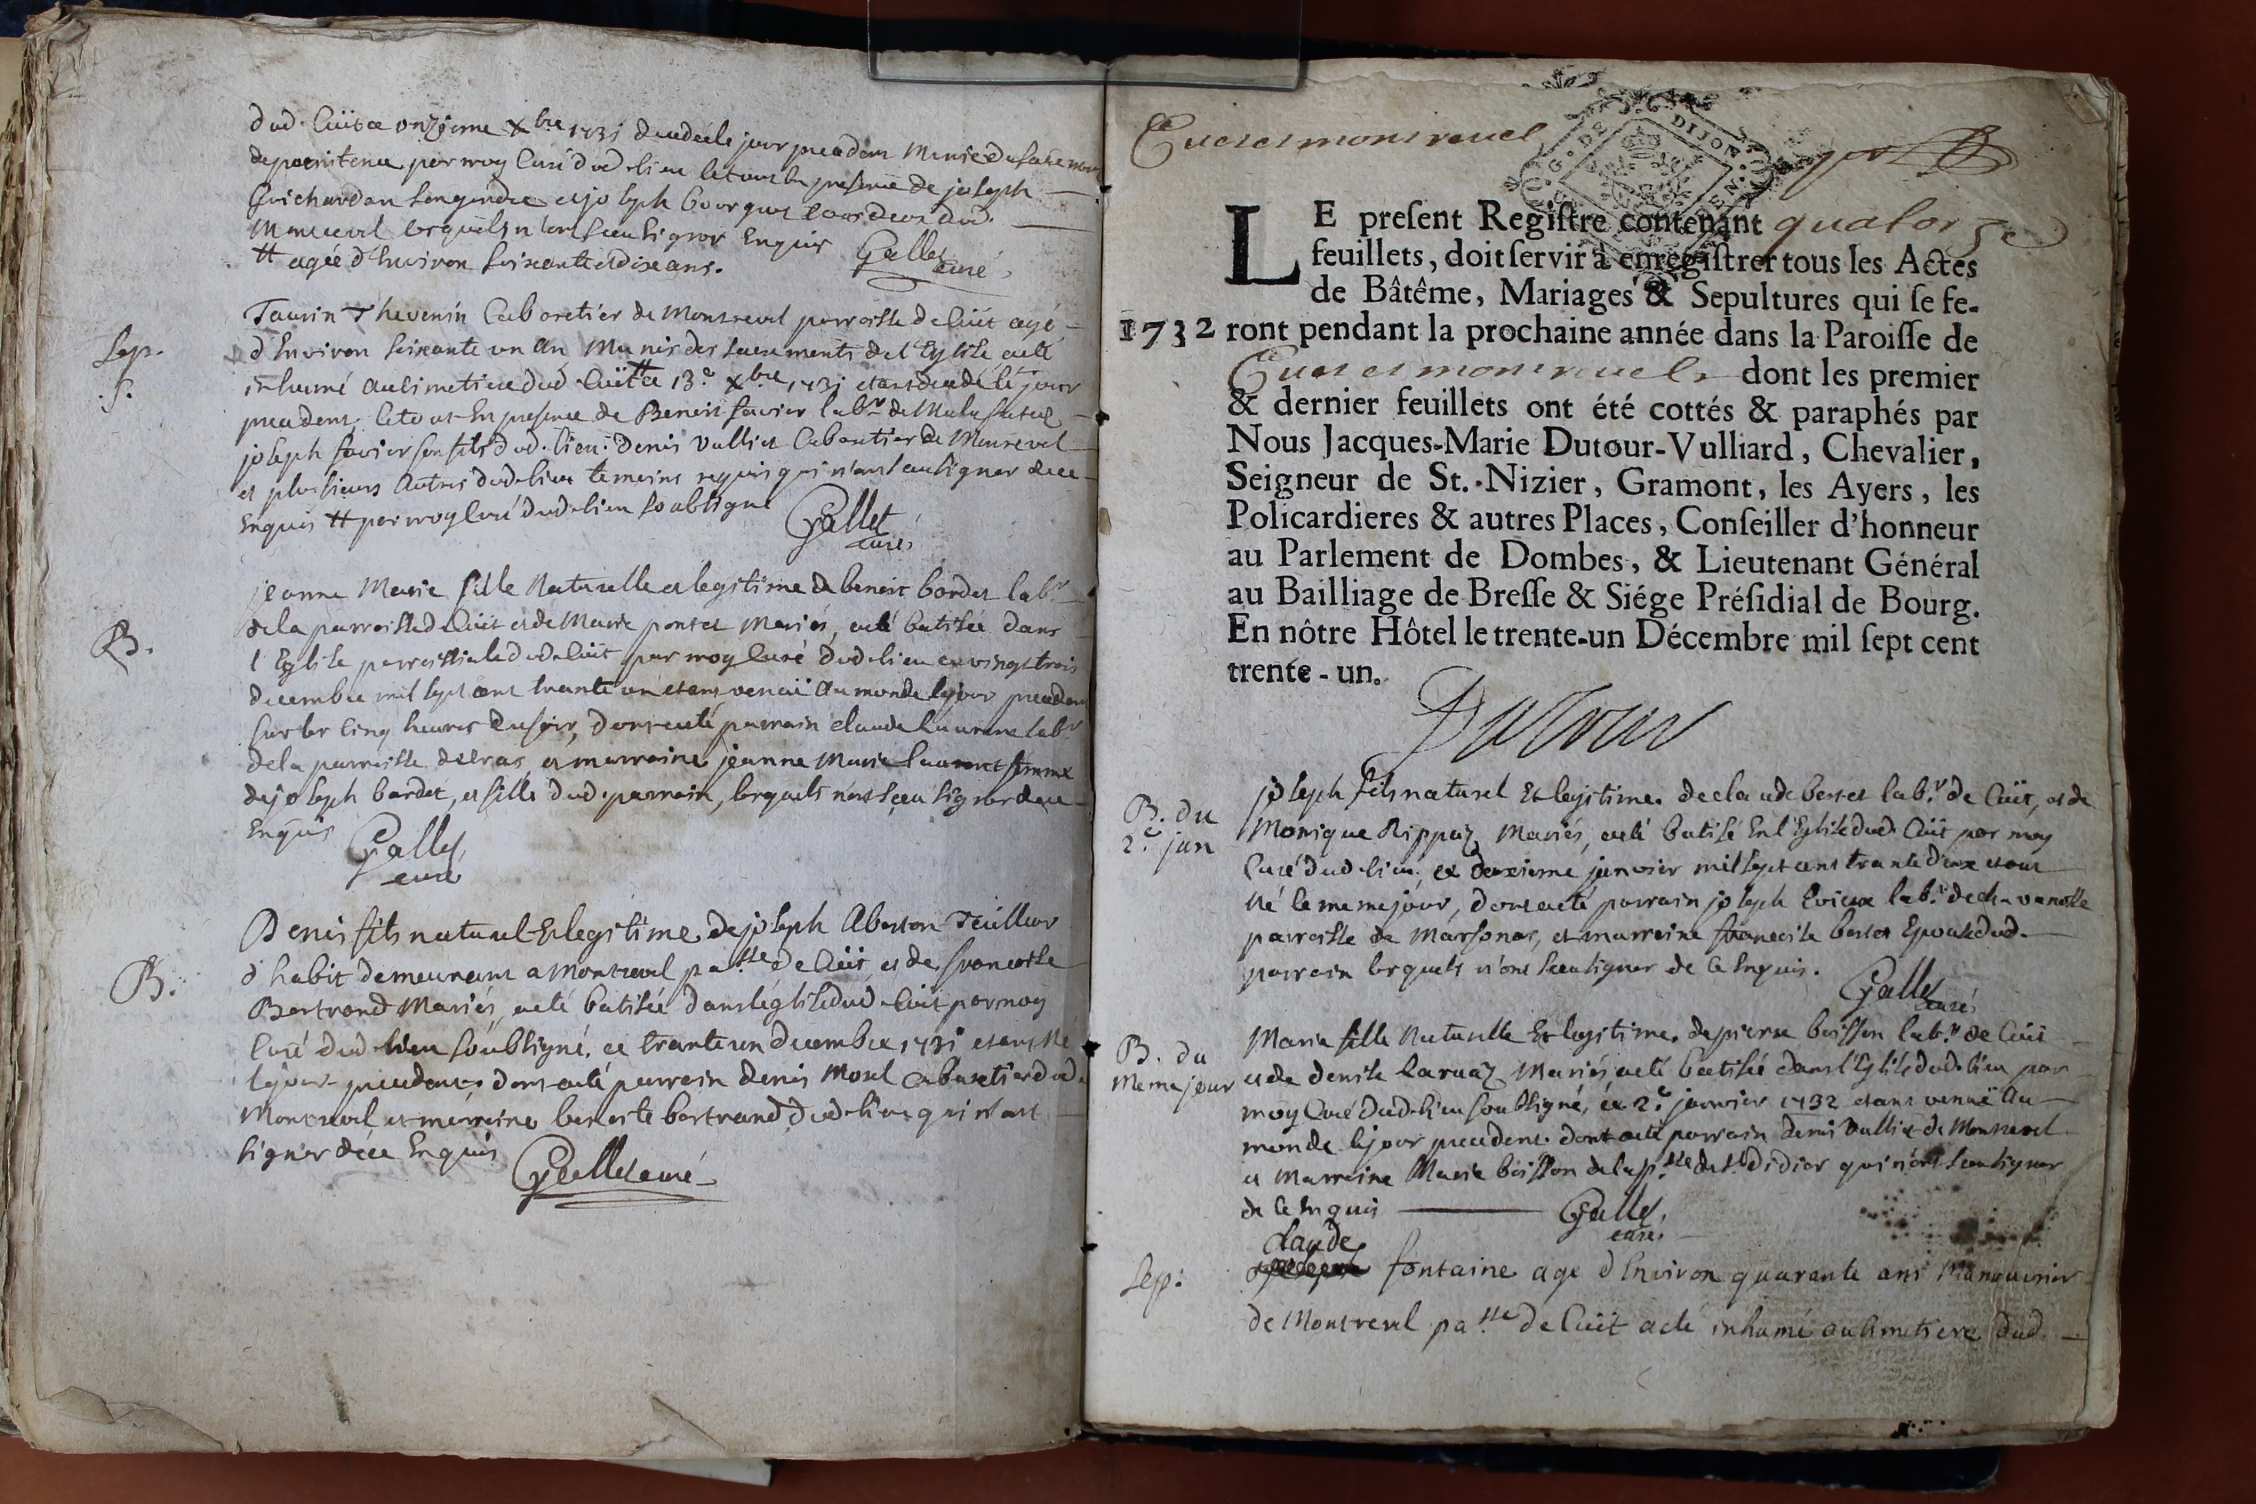 dud. Cuit ce onzieme xbre 1731 decedée le jour precedent Munie du sacrement
de penitence par moy Curé dud. lieu le tout en presence de joseph
Guichardan son gendre et joseph bourgeois dud.
Montrevel lesquels n'ont sceu signer Enquis Gallet
tt agée d'Environ soixante et dix ans. curé
Sep. Taurin Thevenin Cabaretier de Montrevel parroisse de Cuit agé
d'Environ soixante un an Munis des sacrements de l'Eglise a eté
f. inhumé au Cimetiere dud. Cuit tt ce 13e xbre 1731 etant decedé le jour
precedent, le tout En presence de Benoit favier labr de Malafretaz
joseph favier son fils dud. lieu. Denis Vulliet Cabaretier de Montrevel
et plusieurs Autres dud. lieu temoins requis qui n'ont sceu signer de ce
Enquis tt par moy Curé dud. lieu soubsigné Gallet
curé
jeanne Marie fille Naturelle et legitime de benoit bordet labr
B. de la parroisse de Cuit et de Marie ponset Mariés, a eté batisée dans
l'Eglise parroissiale dud. Cuit par moy Curé dud. lieu ce vingt trois
decembre mil sept cent trante un etant venüe Au monde le jour precedent
sur les Cinq heures du soir, dont a eté parrain claude laurent labr
de la parroisse d'etras, et marraine jeanne Marie laurent femme
de joseph bardet, et fille dud. parrain, lesquels n'ont sceu signer de ce
Enquis Gallet
curé
Denis fils naturel et legitime de joseph Aberton Tailleur
B. d'habit demeurant a Montrevel passe de Cuit, et de francoise
Bertrand Mariés, a eté batisée dans l'église dud. Cuit par moy
Curé dud. lieu soubsigné, ce trante un decembre 1731 etant Né
le jour precedent, dont a eté parrain denis Morel Cabaretier dud.
Montrevel et marraine benoite bertrand dud. lieu qui n'ont
signer de ce Enquis Gallet curé
Cuet et montrevel
LE present Registre contenant quatorze
feuillets, doit servir à enregistrer tous les Actes
de Bâtême, Mariages & Sepultures qui se fe-
1732 ront pendant la prochaine année dans la Paroisse de
Cuet et montrevel dont les premier
& dernier feuillets ont été cottés & paraphés par
Nous Jacques-Marie Dutour-Vulliard, Chevalier,
Seigneur de St. Nizier, Gramont, les Ayers, les
Policardieres & autres Places, Conseiller d'honneur
au Parlement de Dombes, & Lieutenant Général
au Bailliage de Bresse & Siége Présidial de Bourg.
En nôtre Hôtel le trente-un Décembre mil sept cent
trente-un.
Dutour
B. du joseph fils naturel Et legitime de claude berset labr de Cuit, et de
2e jan Monique Rippaz Mariés, a eté batisé En l'Eglise dud. Cuit par moy
Curé dud. lieu, ce deuxieme janvier mil sept cent trante deux etant
Né le meme jour, dont a eté parrain joseph Evieux labr de chavanosse
parroisse de Marsonas, et marraine francoise berset Epouse dud.
parrain lesquels n'ont sceu signer de Ce Enquis. Gallet
curé
B. du Marie fille Naturelle Et legitime de pierre boisson labr de Cuit
meme jour et de denise laruaz Mariés, a eté batisée dans l'Eglise dud. lieu par
moy Curé dud. lieu soubsigné, ce 2e janvier 1732 etant venuë Au
monde le jour precedent. dont a eté parrain denis Vulliet de Montrevel
et Marraine Marie boisson de la psse de St didier qui n'ont sceu signer
de Ce Enquis Gallet
curé
Sep. claude fontaine agé d'Environ quarante ans Manouvrier
de Montrevel passe de Cuit a eté inhumé au Cimetiere dud.